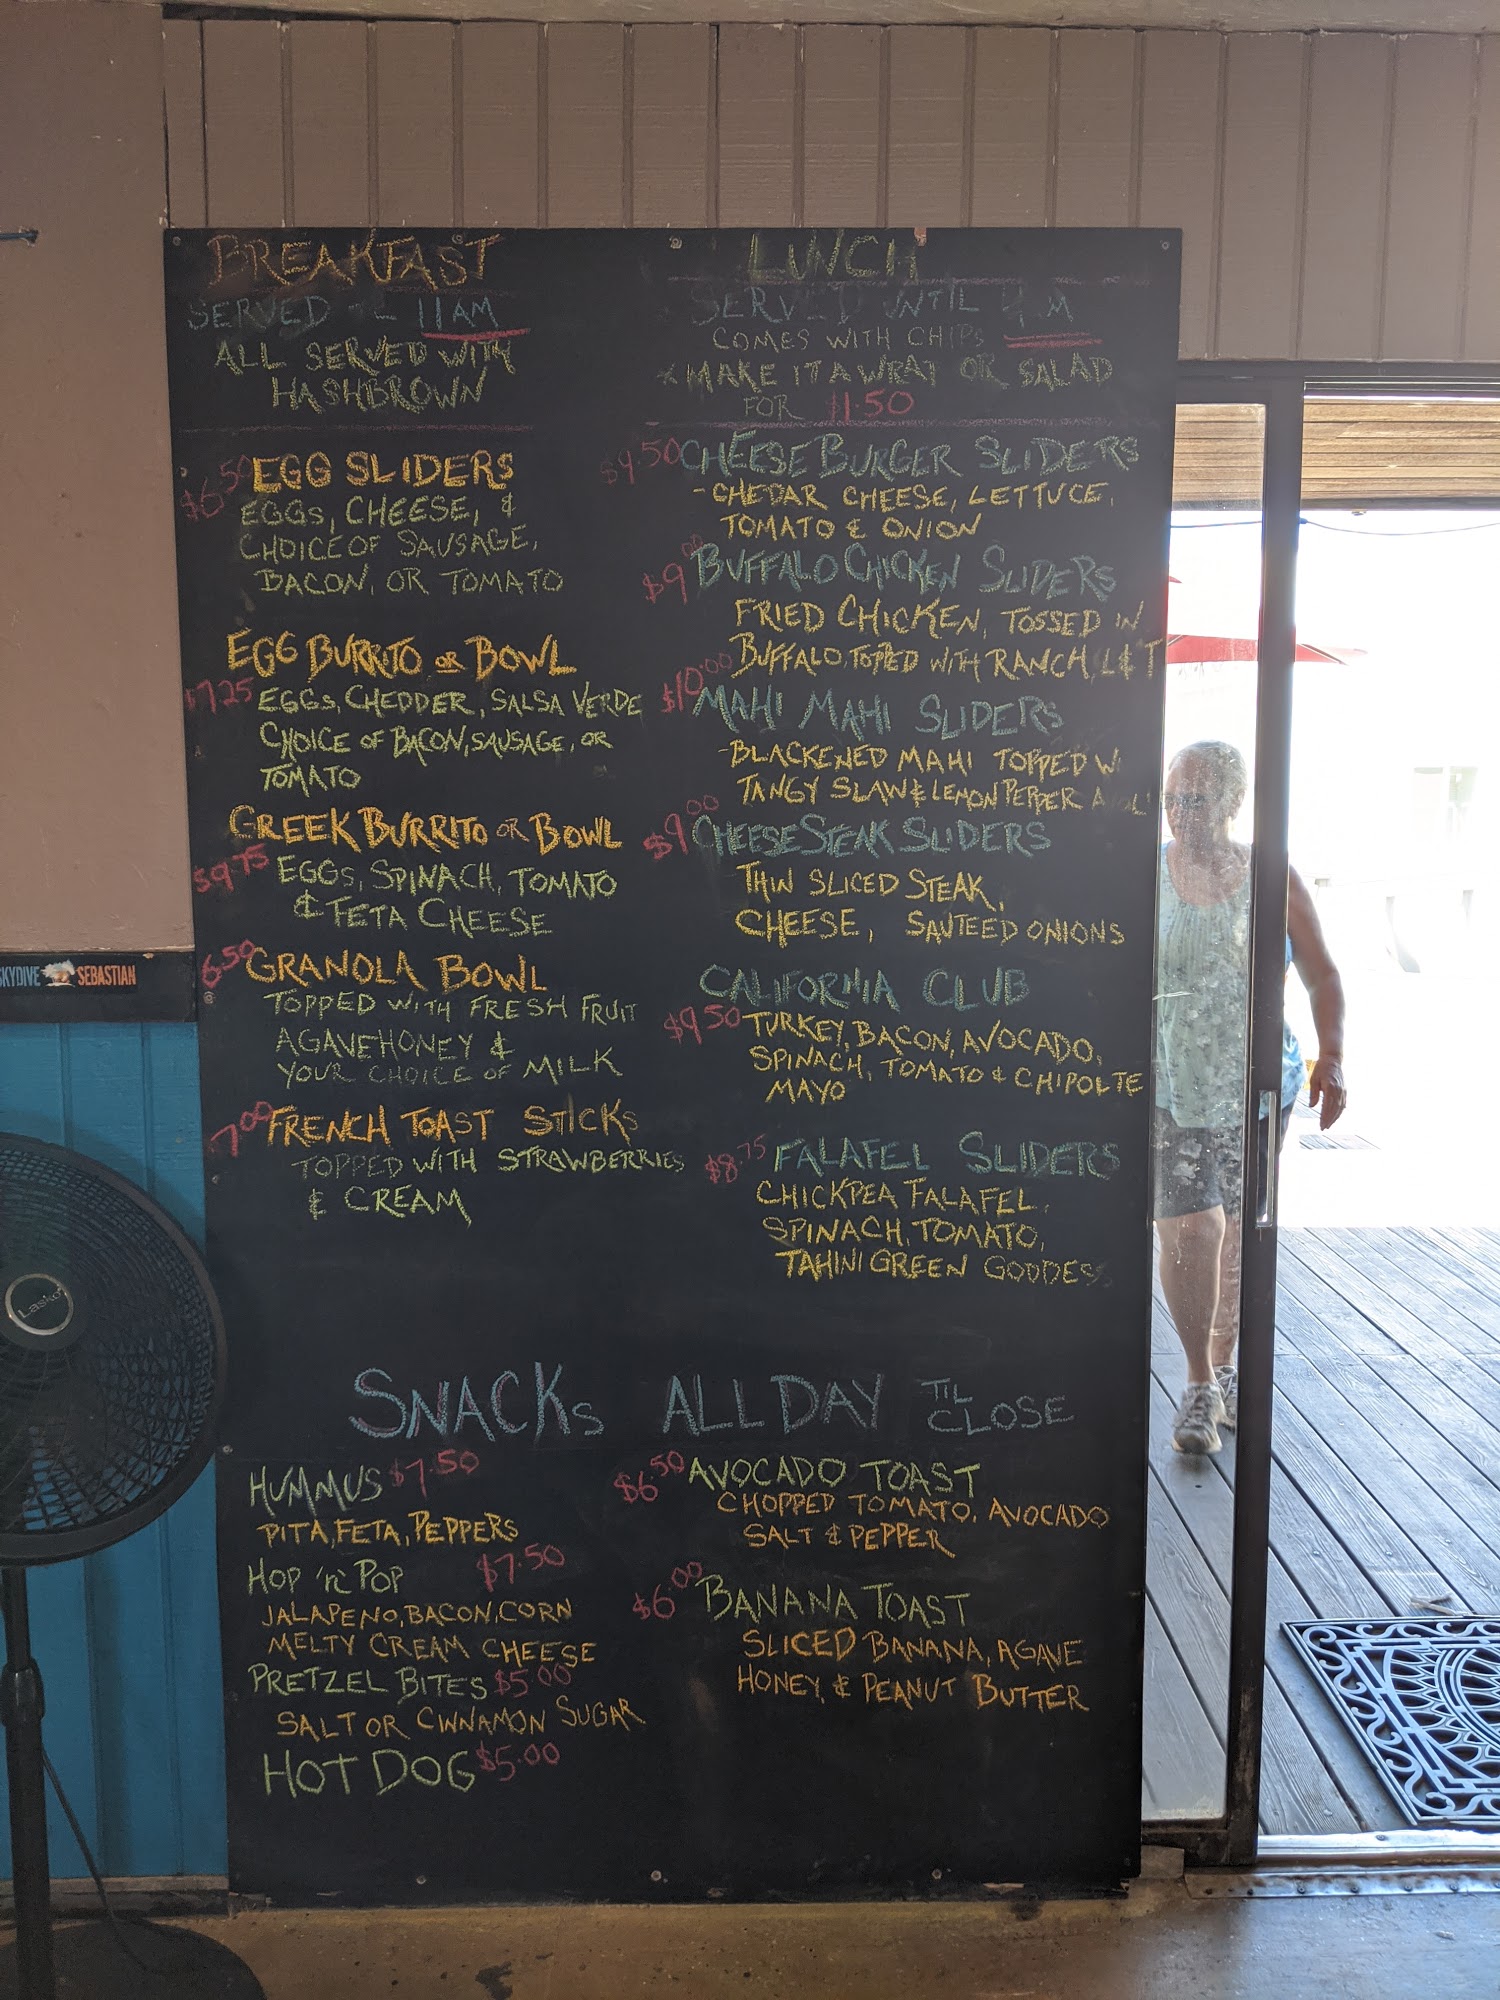 BREAKFAST
SERVED 11AM
ALL SERVED WITH
HASHBROWN
$6.50 EGG SLIDERS
EGGS, CHEESE, &
CHOICE OF SAUSAGE,
BACON, OR TOMATO
EGG BURRITO OR BOWL
$7.25 EGGS, CHEDDER, SALSA VERDE
CHOICE OF BACON, SAUSAGE, OR
TOMATO
GREEK BURRITO OR BOWL
$9.75 EGGS, SPINACH, TOMATO
& FETA CHEESE
6.50 GRANOLA BOWL
TOPPED WITH FRESH FRUIT
AGAVE HONEY &
YOUR CHOICE OF MILK
7.00 FRENCH TOAST STICKS
TOPPED WITH STRAWBERRIES
& CREAM
LUNCH
SERVED UNTIL
COMES WITH CHIPS
* MAKE IT A WRAP OR SALAD
FOR $1.50
$9.50 CHEESEBURGER SLIDERS
- CHEDAR CHEESE, LETTUCE,
TOMATO & ONION
$9.00 BUFFALO CHICKEN SLIDERS
FRIED CHICKEN, TOSSED IN
BUFFALO, TOPPED WITH RANCH, L & T
$10.00 MAHI MAHI SLIDERS
- BLACKENED MAHI TOPPED W
TANGY SLAW & LEMON PEPPER
$9.00 CHEESESTEAK SLIDERS
THIN SLICED STEAK,
CHEESE, SAUTEED ONIONS
CALIFORNIA CLUB
$9.50 TURKEY, BACON, AVOCADO,
SPINACH, TOMATO & CHIPOLTE
MAYO
$8.75 FALAFEL SLIDERS
CHICKPEA FALAFEL,
SPINACH, TOMATO,
TAHINI GREEN GODDESS
SNACKS ALL DAY TIL
CLOSE
HUMMUS $7.50
PITA, FETA, PEPPERS
HOP 'n' POP $7.50
JALAPENO, BACON, CORN
MELTY CREAM CHEESE
PRETZEL BITES $5.00
SALT OR CINNAMON SUGAR
HOT DOG $5.00
$6.50 AVOCADO TOAST
CHOPPED TOMATO, AVOCADO
SALT & PEPPER
$6.00 BANANA TOAST
SLICED BANANA, AGAVE
HONEY, & PEANUT BUTTER
SKYDIVE SEBASTIAN
Lasko